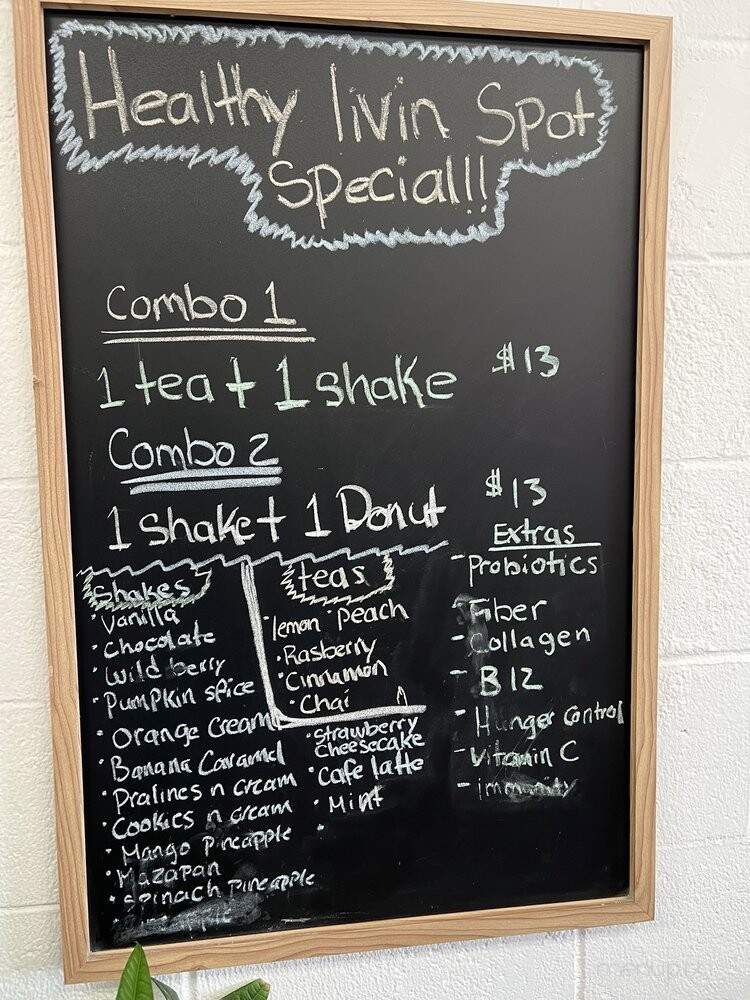 Healthy livin Spot
Special!!!
Combo 1
1 tea + 1 shake $13
Combo 2
1 shake + 1 Donut $13
Shakes
• Vanilla
• Chocolate
• Wild berry
• Pumpkin spice
• Orange Cream
• Banana Caramel
• Pralines n cream
• Cookies n cream
• Mango Pineapple
• Mazapan
• Spinach Pineapple
teas
• lemon • Peach
• Rasberry
• Cinnamon
• Chai
• Strawberry
Cheesecake
• Cafe latte
• Mint
•
Extras
- Probiotics
- Fiber
- Collagen
- B12
- Hunger Control
- Vitamin C
- immunity